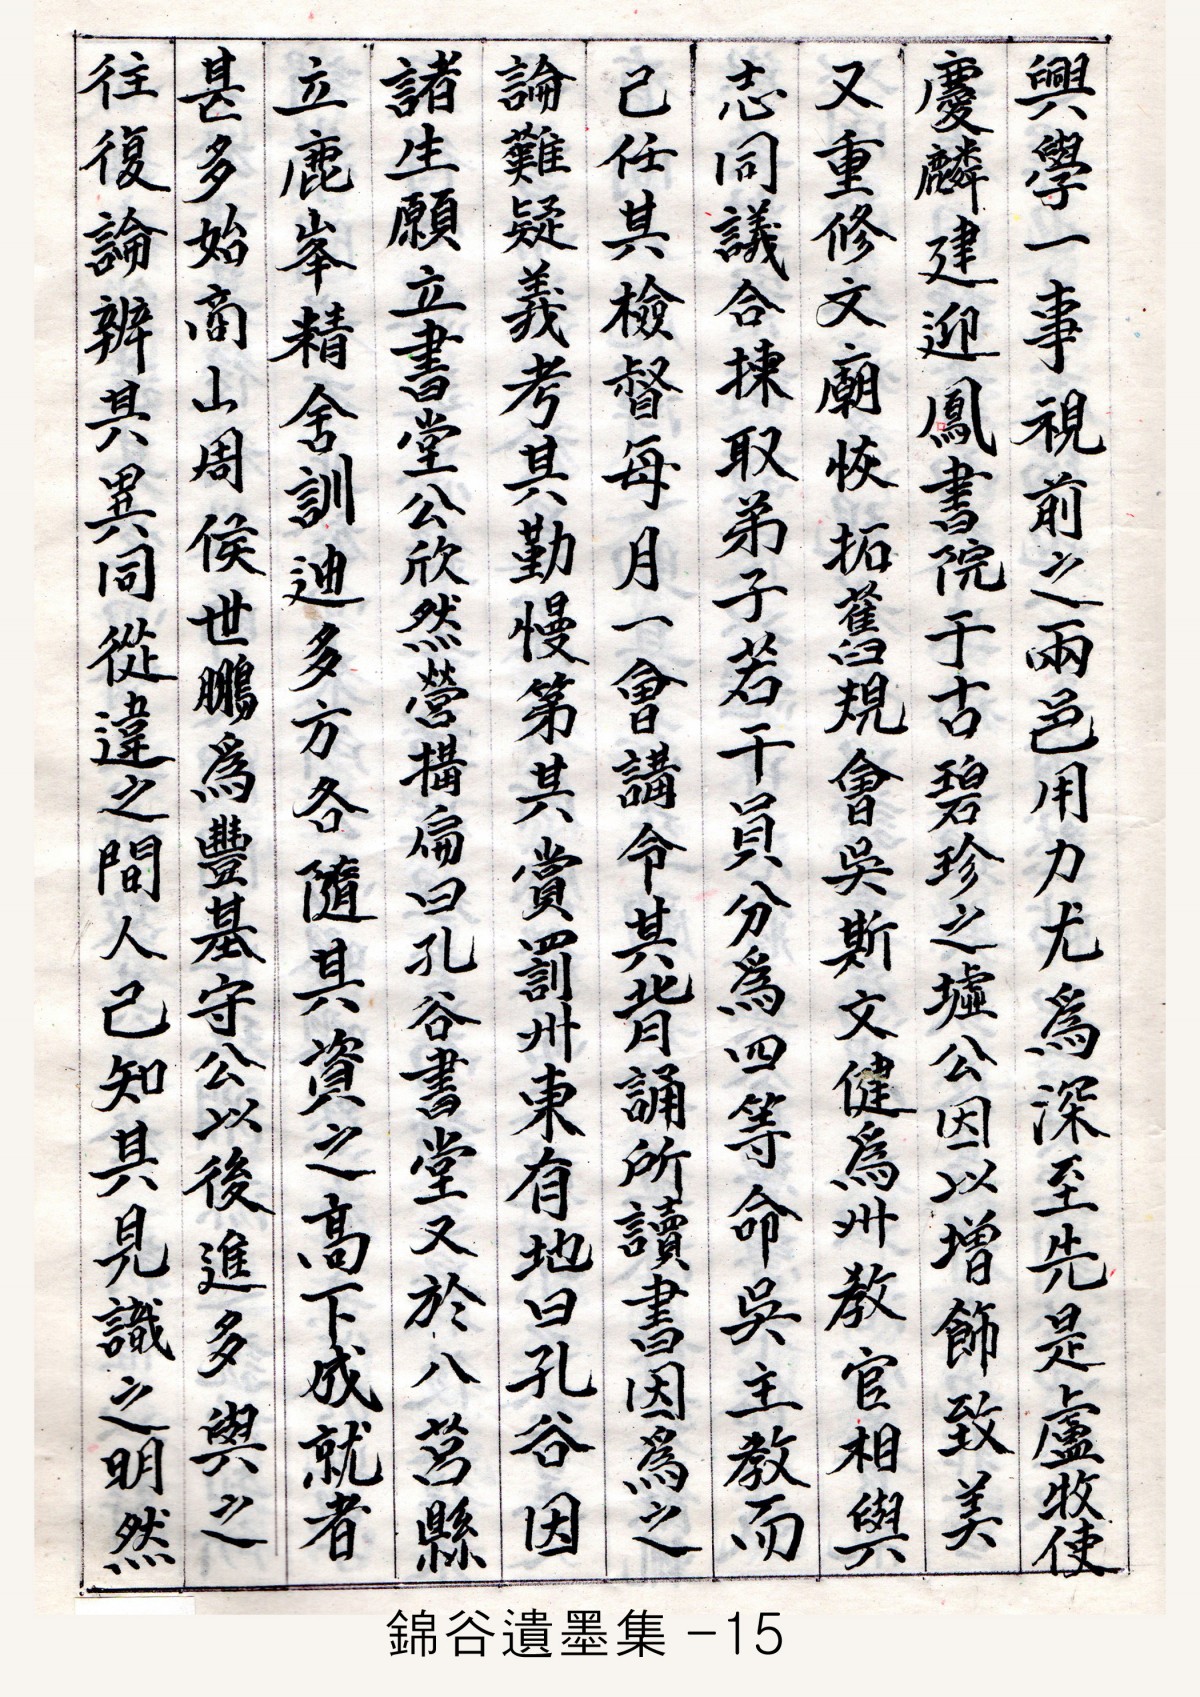 興學一事視前之兩邑用力尤爲深至先是盧牧使
慶麟建迎鳳書院于古碧珍之墟公因以增飾致美
又重修文廟恢拓舊規會吳斯文健爲州教官相與
志同議合揀取弟子若干員分爲四等命吳主教而
己任其檢督每月一會講令其背誦所讀書因爲之
論難疑義考其勤慢第其賞罰州東有地曰孔谷因
諸生願立書堂公欣然營搆扁曰孔谷書堂又於八莒縣
立鹿峯精舍訓迪多方各隨其資之高下成就者
甚多始商山周侯世鵬爲豐基守公以後進多與之
往復論辨其異同從違之間人己知其見識之明然
錦谷遺墨集 -15